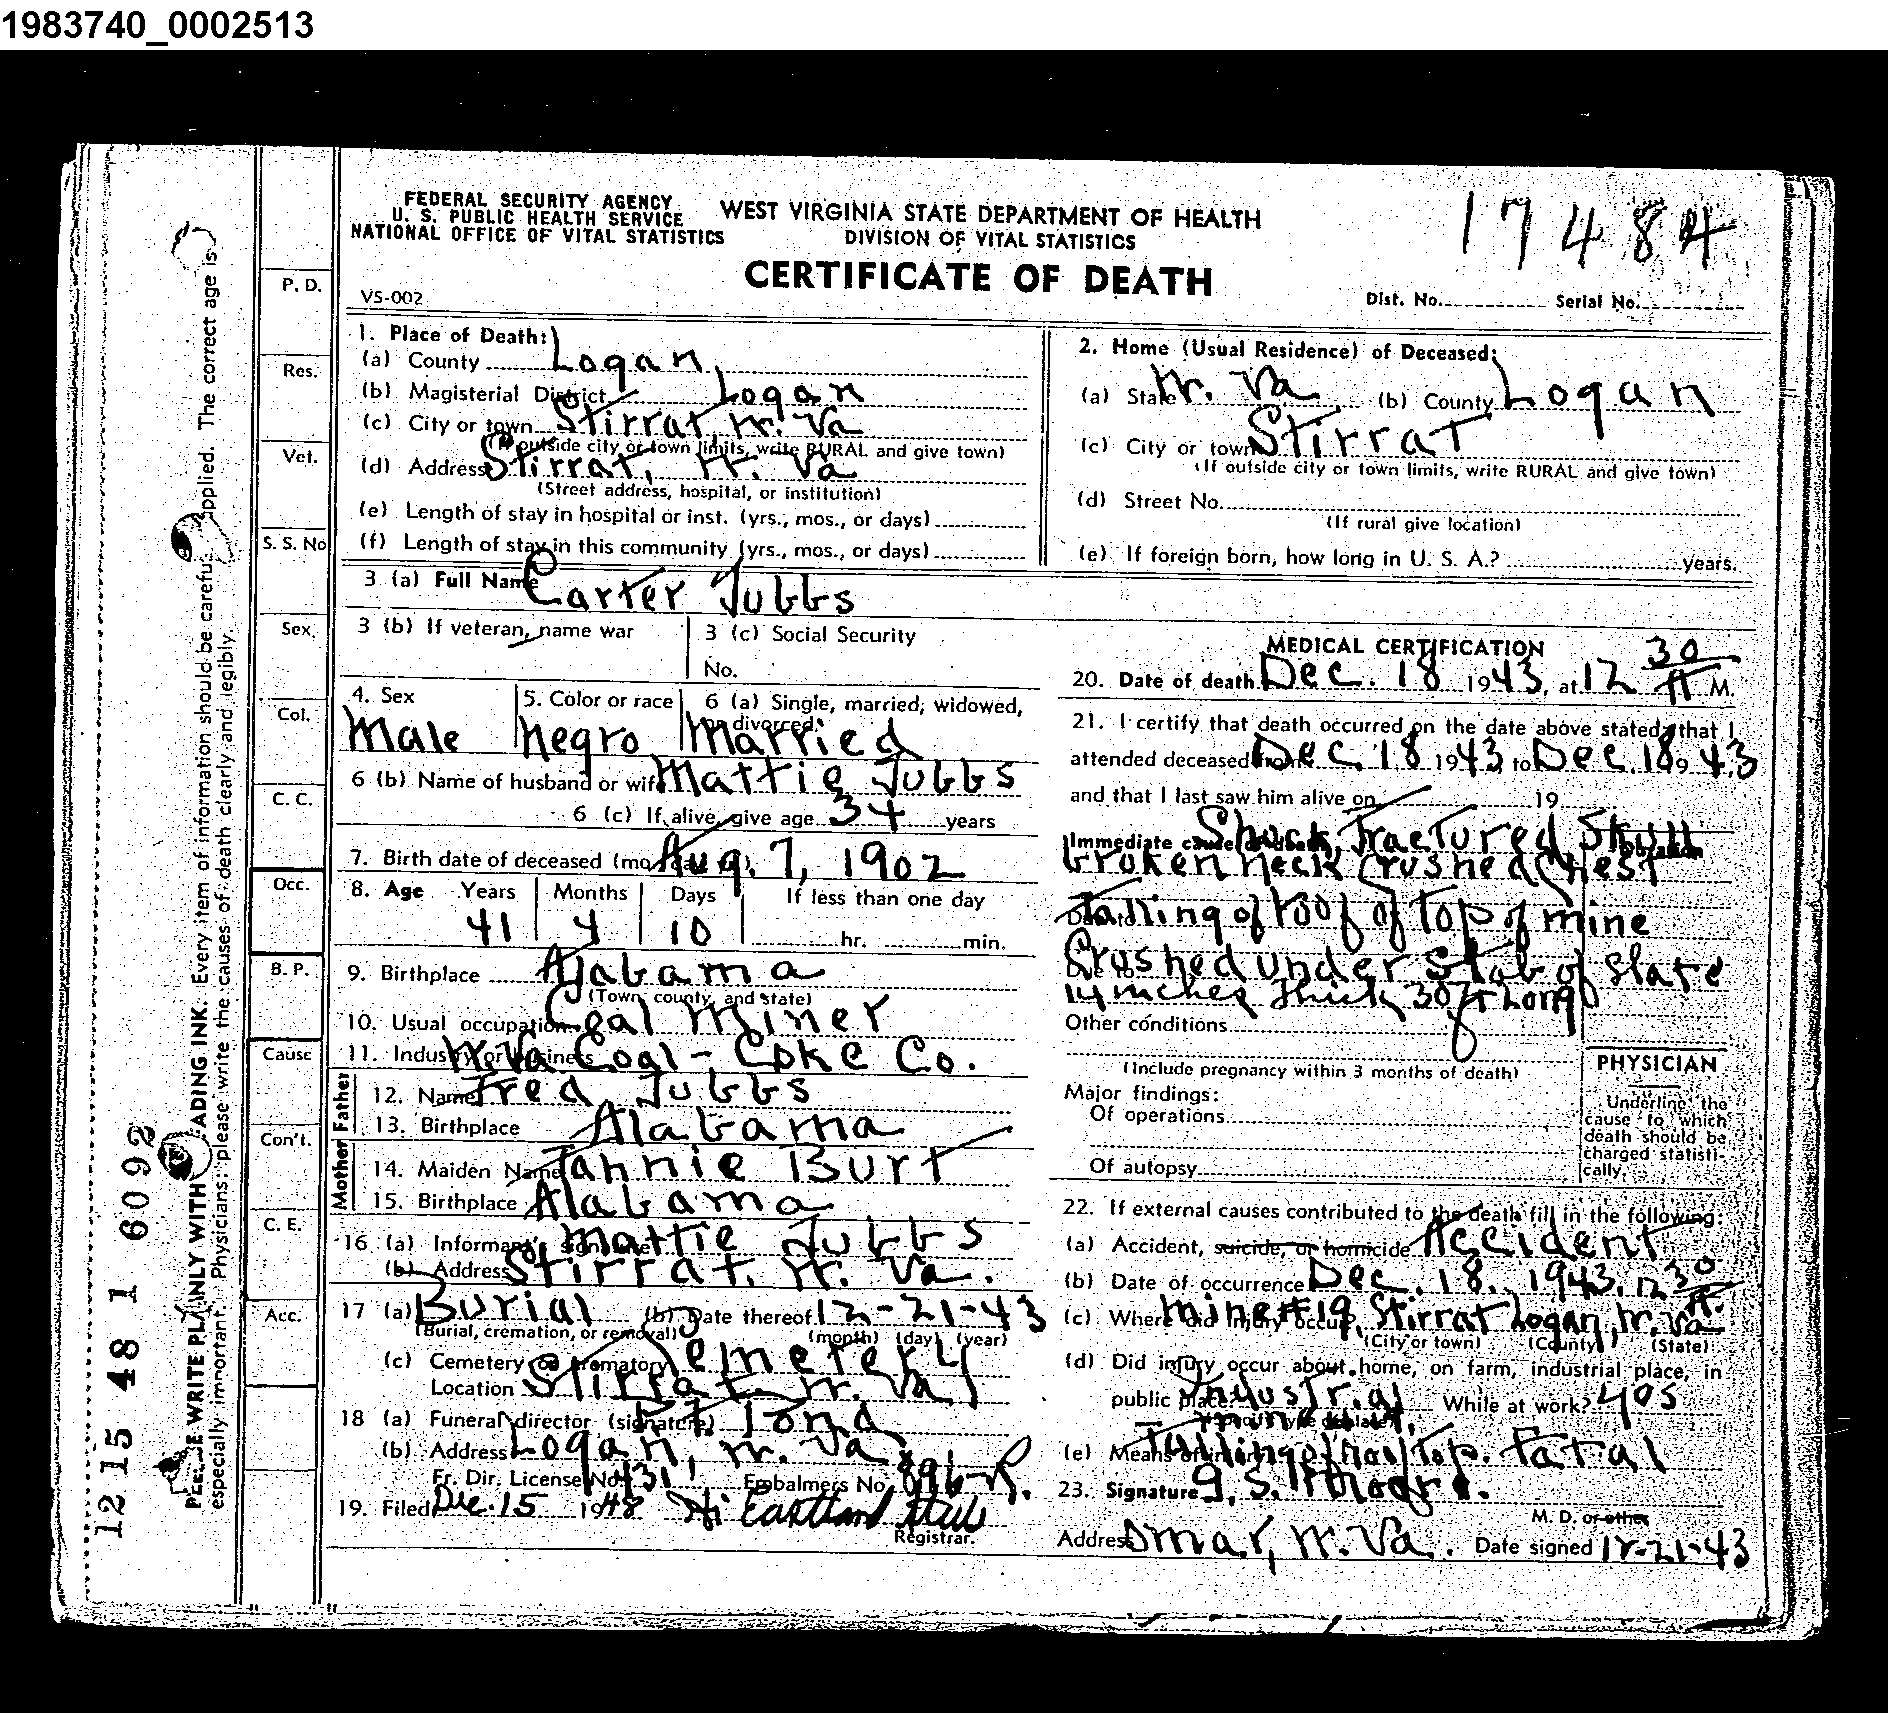 1983740_0002513
FEDERAL SECURITY AGENCY
U. S. PUBLIC HEALTH SERVICE
NATIONAL OFFICE OF VITAL STATISTICS
WEST VIRGINIA STATE DEPARTMENT OF HEALTH
DIVISION OF VITAL STATISTICS
CERTIFICATE OF DEATH
17484
VS-002
Dist. No. Serial No.
1. Place of Death:
(a) County Logan
(b) Magisterial District Logan
(c) City or town Stirrat, W. Va
(If outside city or town limits, write RURAL and give town)
(d) Address Stirrat, W. Va
(Street address, hospital, or institution)
(e) Length of stay in hospital or inst. (yrs., mos., or days)
(f) Length of stay in this community (yrs., mos., or days)
2. Home (Usual Residence) of Deceased:
(a) State W. Va (b) County Logan
(c) City or town Stirrat
(If outside city or town limits, write RURAL and give town)
(d) Street No.
(If rural give location)
(e) If foreign born, how long in U. S. A.? years.
3 (a) Full Name Carter Tubbs
3 (b) If veteran, name war
3 (c) Social Security
No.
4. Sex Male
5. Color or race Negro
6 (a) Single, married, widowed,
or divorced: Married
6 (b) Name of husband or wife Mattie Tubbs
6 (c) If alive, give age 34 years
7. Birth date of deceased (mo Aug. 7, 1902
8. Age Years Months Days If less than one day
41 4 10 hr. min.
9. Birthplace Alabama
(Town, county, and state)
10. Usual occupation Coal Miner
11. Industry or business W. Va Coal-Coke Co.
Father
12. Name Fred Tubbs
13. Birthplace Alabama
Mother
14. Maiden Name Fannie Burt
15. Birthplace Alabama
16 (a) Informant's signature Mattie Tubbs
(b) Address Stirrat, W. Va.
17 (a) Burial (b) Date thereof 12-21-43
(Burial, cremation, or removal) (month) (day) (year)
(c) Cemetery or crematory Cemetery
Location Stirrat W. Va
18 (a) Funeral director (signature)
(b) Address Logan, W. Va
Fr. Dir. License No. 431 Embalmers No. 896-R.
19. Filed Dec. 15 1948
Registrar.
MEDICAL CERTIFICATION
20. Date of death Dec. 18 1943, at 12 30 A M.
21. I certify that death occurred on the date above stated; that I
attended deceased from Dec. 18 1943, to Dec. 18 19 43
and that I last saw him alive on 19
Immediate cause of death Shock, Fractured Skull
Duration
broken neck Crushed Chest
Due to Falling of roof of top of mine
Due to Crushed under Slab of Slate
14 inches Thick 30 ft Long
Other conditions
(Include pregnancy within 3 months of death)
Major findings:
Of operations
Of autopsy
PHYSICIAN
Underline the
cause to which
death should be
charged statisti-
cally.
22. If external causes contributed to the death fill in the following:
(a) Accident, suicide, or homicide Accident
(b) Date of occurrence Dec. 18, 1943, 12 30 A.
(c) Where did injury occur? Mine #19, Stirrat Logan, W. Va
(City or town) (County) (State)
(d) Did injury occur about home, on farm, industrial place, in
public place? Industrial While at work? yes
(e) Means of injury Falling of roof Top. Fatal
23. Signature
M. D. or other
Address Omar, W. Va. Date signed 12-21-43
P. D.
Res.
Vet.
S. S. No
Sex.
Col.
C. C.
Occ.
B. P.
Cause
Con't.
C. E.
Acc.
WRITE PLAINLY WITH ADING INK. Every item of information should be carefu pplied. The correct age is
especially important. Physicians: please write the causes of death clearly and legibly.
12 15 48 1 6092